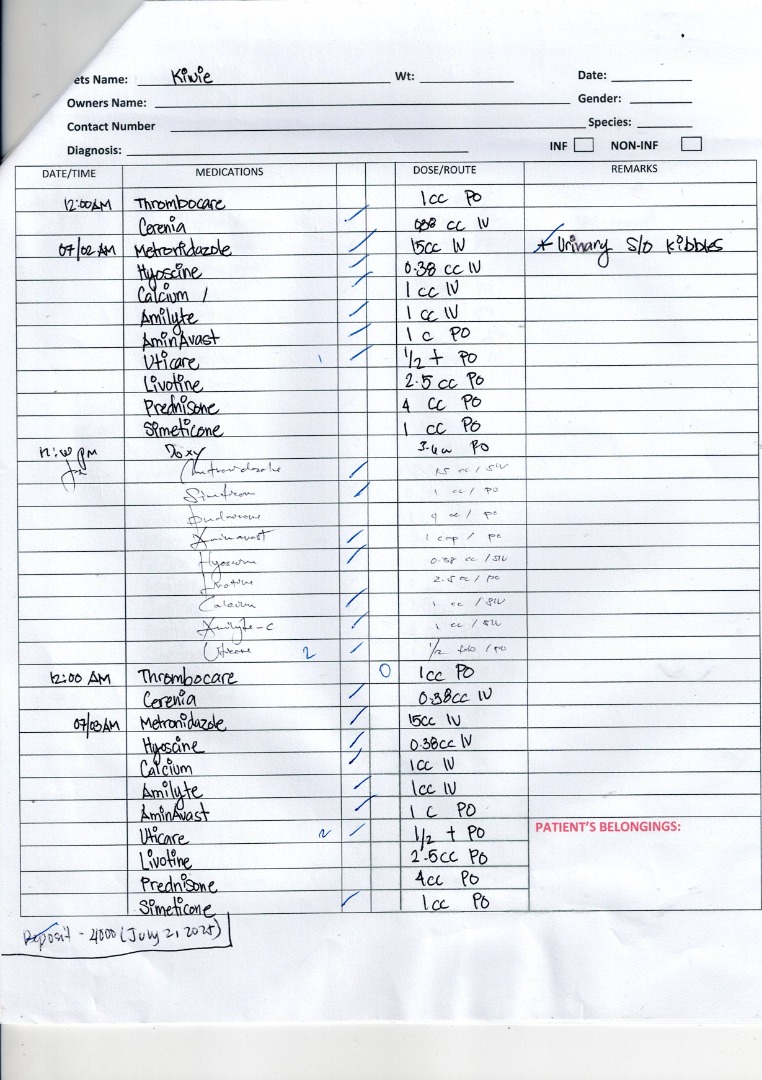 ets Name: Kiwie Wt: Date:
Owners Name: Gender:
Contact Number Species:
Diagnosis: INF NON-INF
DATE/TIME MEDICATIONS DOSE/ROUTE REMARKS
12:00AM Thrombocare 1cc PO
Cerenia cc IV
07/02 AM Metronidazole 15cc IV * Urinary S/O Kibbles
Hyoscine 0.38 cc IV
Calcium / 1 cc IV
Amilyte 1 cc IV
AminAvast 1 c PO
Uticare 1 1/2 + PO
Livotine 2.5 cc PO
Prednisone 4 cc PO
Simeticone 1 cc PO
PM Doxy PO
Metronidazole 15 cc / SIV
1 cc / PO
4 cc / PO
Aminavast 1 cap / PO
Hyoscine 0.38 cc / SIV
Livotine 2.5 cc / PO
Calcium 1 cc / SIV
Amilyte-C 1 cc / SIV
Uticare 2 1/2 tab / PO
12:00 AM Thrombocare 0 1cc PO
Cerenia 0.38cc IV
07/03AM Metronidazole 15cc IV
Hyoscine 0.38cc IV
Calcium 1cc IV
Amilyte 1cc IV
AminAvast 1 C PO
Uticare 2 1/2 + PO
PATIENT'S BELONGINGS:
Livotine 2.5cc PO
Prednisone 4cc PO
Simeticone 1cc PO
Deposit - 4000 (July 2, 2025)